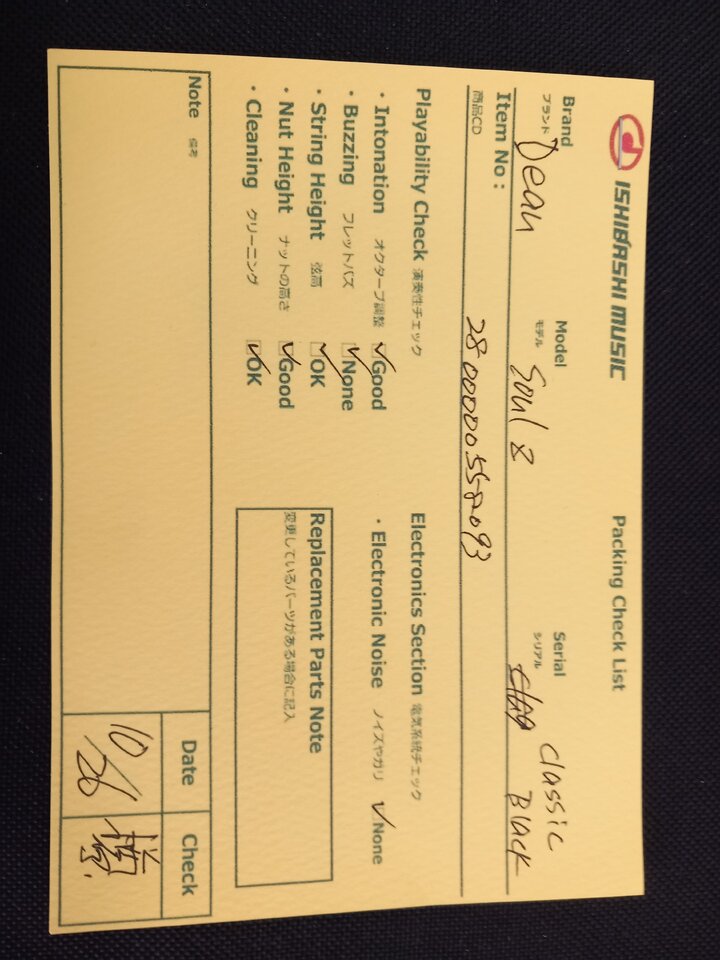 ISHIBASHI MUSIC
Packing Check List
Brand Model Serial
ブランド モデル シリアル
Dean Soul 8 Classic Black
Item No :
商品CD
2800000558093
Playability Check 演奏性チェック
・Intonation オクターブ調整 Good
・Buzzing フレットバズ None
・String Height 弦高 OK
・Nut Height ナットの高さ Good
・Cleaning クリーニング OK
Electronics Section 電気系統チェック
・Electronic Noise ノイズやガリ None
Replacement Parts Note
変更しているパーツがある場合に記入
Note 備考
Date Check
10/26